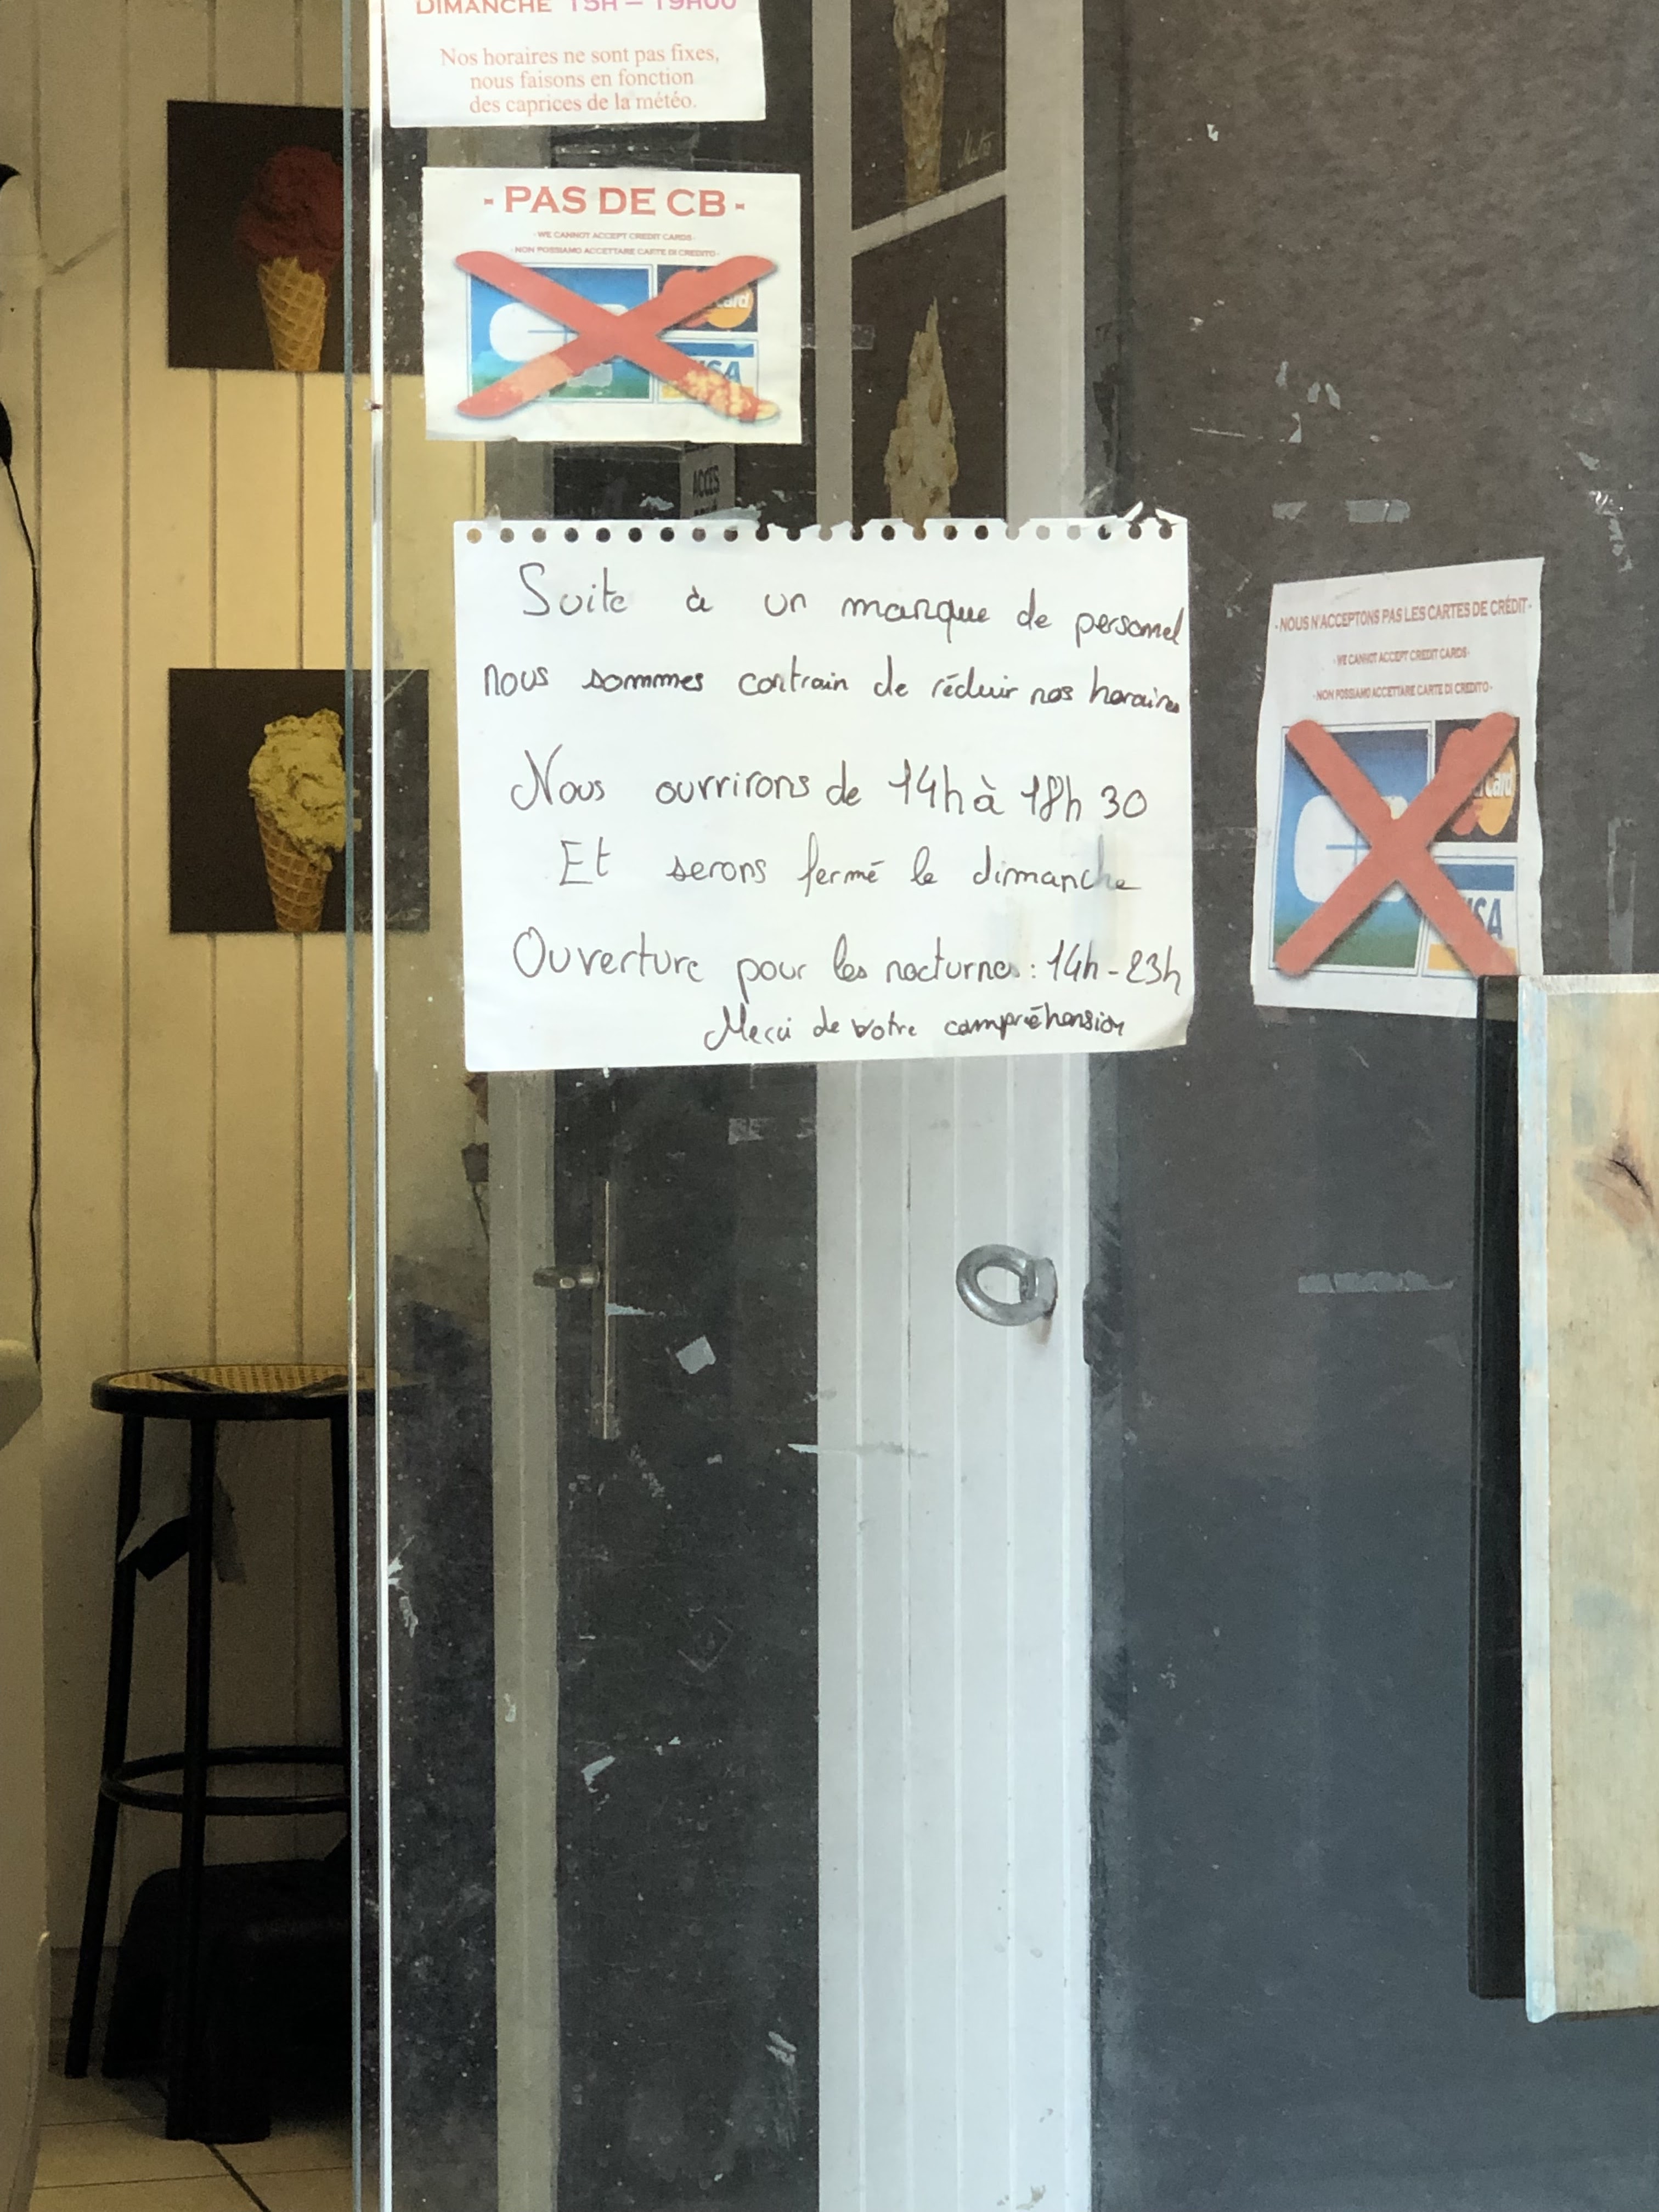 DIMANCHE 15H – 19H00
Nos horaires ne sont pas fixes,
nous faisons en fonction
des caprices de la météo.
- PAS DE CB -
- WE CANNOT ACCEPT CREDIT CARDS -
- NON POSSIAMO ACCETTARE CARTE DI CREDITO -
ACCES
Suite à un manque de personel
nous sommes contrain de réduir nos horaires
Nous ouvrirons de 14h à 18h 30
Et serons fermé le dimanche
Ouverture pour les nocturnes : 14h - 23h
Merci de votre compréhension
- NOUS N'ACCEPTONS PAS LES CARTES DE CRÉDIT -
- WE CANNOT ACCEPT CREDIT CARDS -
- NON POSSIAMO ACCETTARE CARTE DI CREDITO -